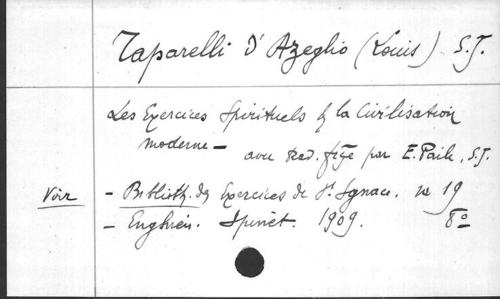 Taparelli D'Azeglio (Louis) S.J.
Les Exercices Spirituels & la Civilisation
moderne — avec trad. frçe par E. Paile, S.J.
Voir — Biblioth. des Exercices de St. Ignace. no 19
— Enghien. Spinet. 1909. 8o